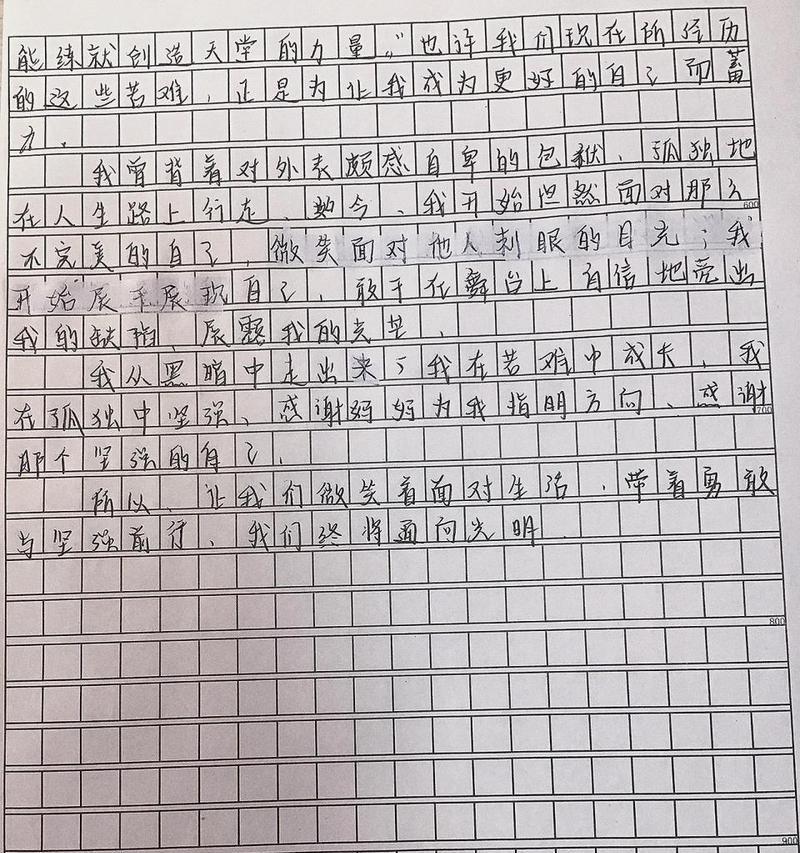 能练就创造天堂的力量。”也许我们现在所经历
的这些苦难，正是为让我成为更好的自己而蓄
力。
我曾背着对外表颇感自卑的包袱，孤独地
在人生路上行走，如今，我开始坦然面对那么
600
不完美的自己，微笑面对他人刺眼的目光；我
开始展手展现自己，敢于在舞台上自信地亮出
我的缺陷，展露我的光芒。
我从黑暗中走出来了，我在苦难中成长，我
在孤独中坚强、感谢妈妈为我指明方向、感谢
700
那个坚强的自己。
所以，让我们微笑着面对生活，带着勇敢
与坚强前行，我们终将面向光明
800
900